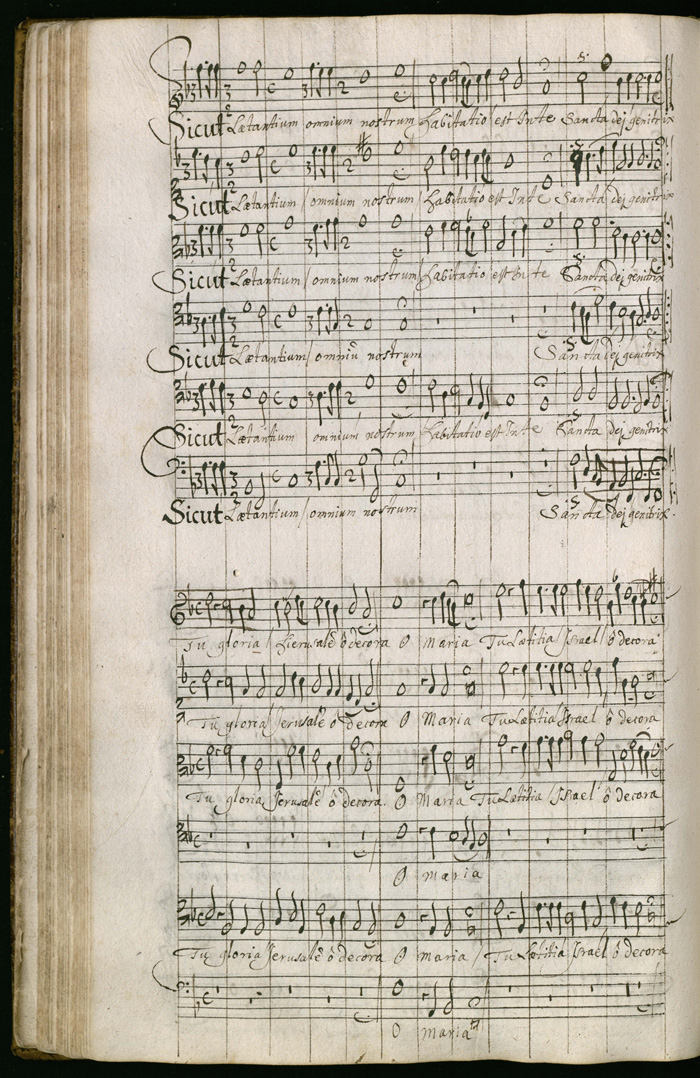 Sicut Lætantium omnium nostrum habitatio est In te Sancta dej genitrix
Sicut Lætantium omnium nostrum habitatio est Int e Sancta dej genitrix
Sicut Lætantium omnium nostrum habitatio est In te Sancta dej genitrix
Sicut Lætantium omniũ nostrum Sancta dej genitrix
Sicut Lætantium omnium nostrum habitatio est In te Sancta dej genitrix
Sicut Lætantium omnium nostrum Sancta dej genitrix
Tu gloria Hierusalẽ ô decora O Maria Tu Lætitia Israel ô decora
Tu gloria Jerusalẽ ô decora O Maria Tu Lætitia Israel ô decora
Tu gloria Jerusalẽ ô decora O Maria Tu Lætitia Israel ô decora
O maria
Tu gloria Jerusalẽ ô decora O maria Tu Lætitia Israel ô decora
O maria